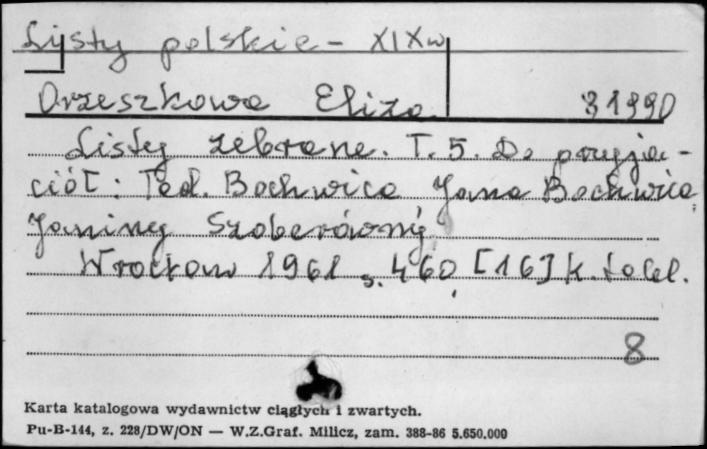 Listy polskie - XIX w
Orzeszkowa Eliza 31990
Listy zebrane. T. 5. Do przyja-
ciół: Teod. Bochwica Jana Bochwica,
Janiny Szoberówny
Wrocław 1961 s. 460, [16] k. tabl.
8
Karta katalogowa wydawnictw ciągłych i zwartych.
Pu-B-144, z. 228/DW/ON — W.Z.Graf. Milicz, zam. 388-86 5.650.000